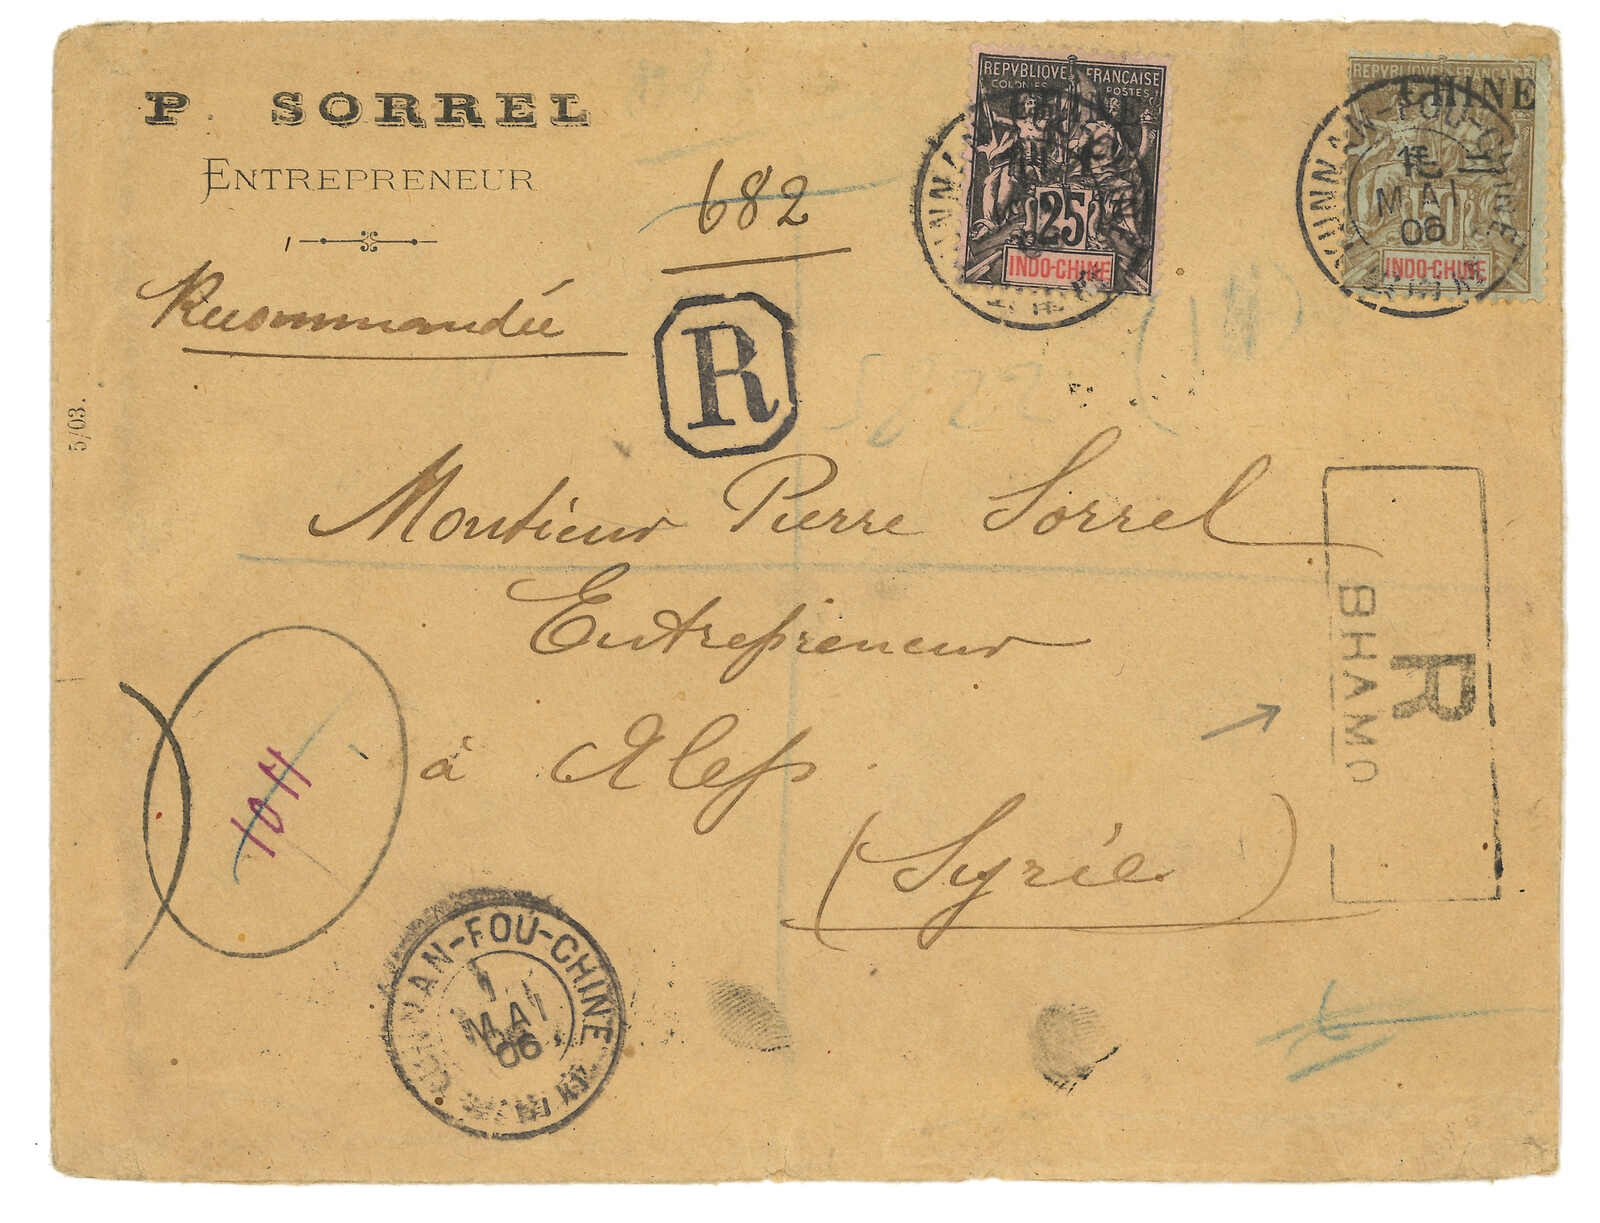 P. SORREL
ENTREPRENEUR
Recommandée
682
R
5/03.
REPVBLIQVE FRANÇAISE
COLONIES POSTES
CHINE
25
INDO-CHINE
REPVBLIQVE FRANÇAISE
CHINE
INDO-CHINE
YUNNAN-FOU-CHINE
MAI
06
Monsieur Pierre Sorrel
Entrepreneur
à Alep.
(Syrie)
R
BHAMO
YUNNAN-FOU-CHINE
MAI
06